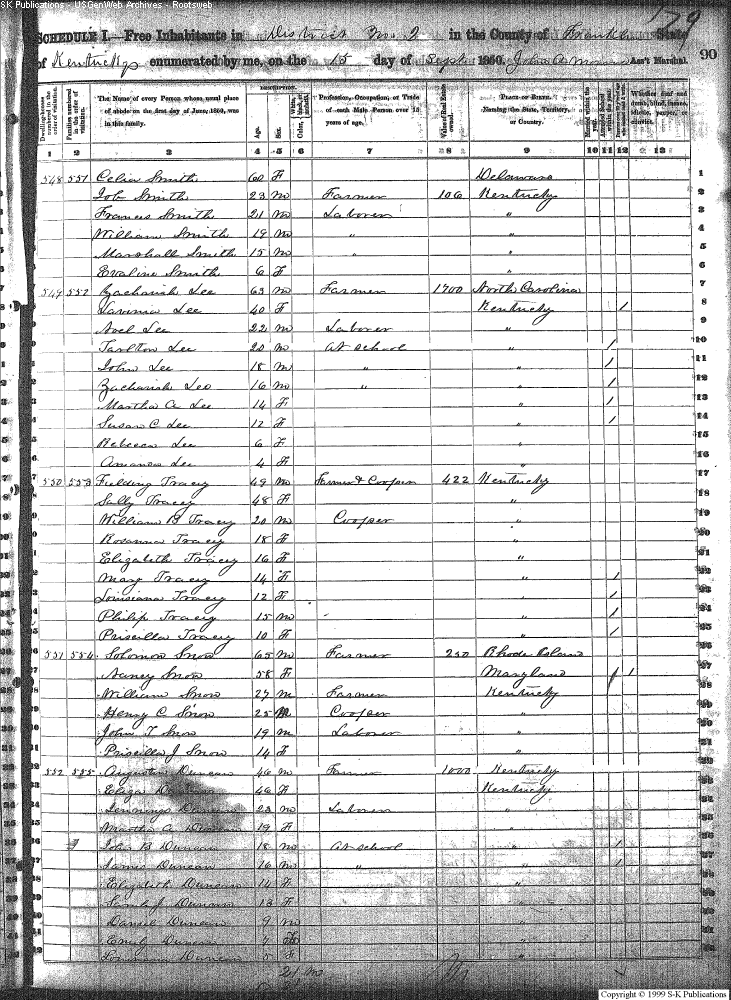 S-K Publications - USGenWeb Archives - Rootsweb
179
SCHEDULE I.—Free Inhabitants in District No. 2 in the County of Franklin State
of Kentucky enumerated by me, on the 15 day of Sept 1850. John A. Ass't Marshal. 90
DESCRIPTION.
Dwelling-houses numbered in the order of visitation.
Families numbered in the order of visitation.
The Name of every Person whose usual place of abode on the first day of June, 1850, was in this family.
Age.
Sex.
Color,
Profession, Occupation, or Trade of each Male Person over 15 years of age.
Value of Real Estate owned.
PLACE OF BIRTH. Naming the State, Territory, or Country.
Married within the year.
Whether deaf and dumb, blind, insane, idiotic, pauper, or convict.
1 2 3 4 5 6 7 8 9 10 11 12 13
548 551 Celia Smith 60 F Delaware 1
Job Smith 23 m Farmer 106 Kentucky 2
Frances Smith 21 m Laborer " 3
William Smith 19 m " " 4
Marshall Smith 15 m " " 5
Evaline Smith 6 F " 6
549 552 Zachariah Lee 63 m Farmer 1700 North Carolina 7
Lavinia Lee 40 F Kentucky / 8
Noel Lee 22 m Laborer " 9
Tarlton Lee 20 m At school " / 10
John Lee 18 m " " / 11
Zachariah Lee 16 m " " / 12
Martha A Lee 14 F " / 13
Susan C Lee 12 F " / 14
Rebecca Lee 6 F " 15
Amanda Lee 4 F " 16
550 553 Fielding Tracey 49 m Farmer & Cooper 422 Kentucky 17
Sally Tracey 48 F " 18
William B Tracey 20 m Cooper " 19
Rosanna Tracey 18 F " 20
Elizabeth Tracey 16 F " 21
Mary Tracey 14 F " / 22
Louisiana Tracey 12 F " / 23
Philip Tracey 15 m " / 24
Priscilla Tracey 10 F " / 25
551 554 Solomon Snow 65 m Farmer 250 Rhode Island 26
Nancy Snow 58 F Maryland / 1 27
William Snow 27 m Farmer Kentucky 28
Henry C. Snow 25 M Cooper " 29
John T Snow 19 m Laborer " 30
Priscilla J Snow 14 F " 31
552 555 Augustus Duncan 46 m Farmer 1000 Kentucky
Eliza 46 F Kentucky
Jennings Duncan 23 m Laborer "
Martha A Duncan 19 F "
John B Duncan 18 m At school " /
James Duncan 16 m " " /
Elizabeth Duncan 14 F "
Sarah J Duncan 13 F "
Daniel Duncan 9 m "
Duncan 7 F "
Duncan 5 F "
21 m
Copyright © 1999 S-K Publications